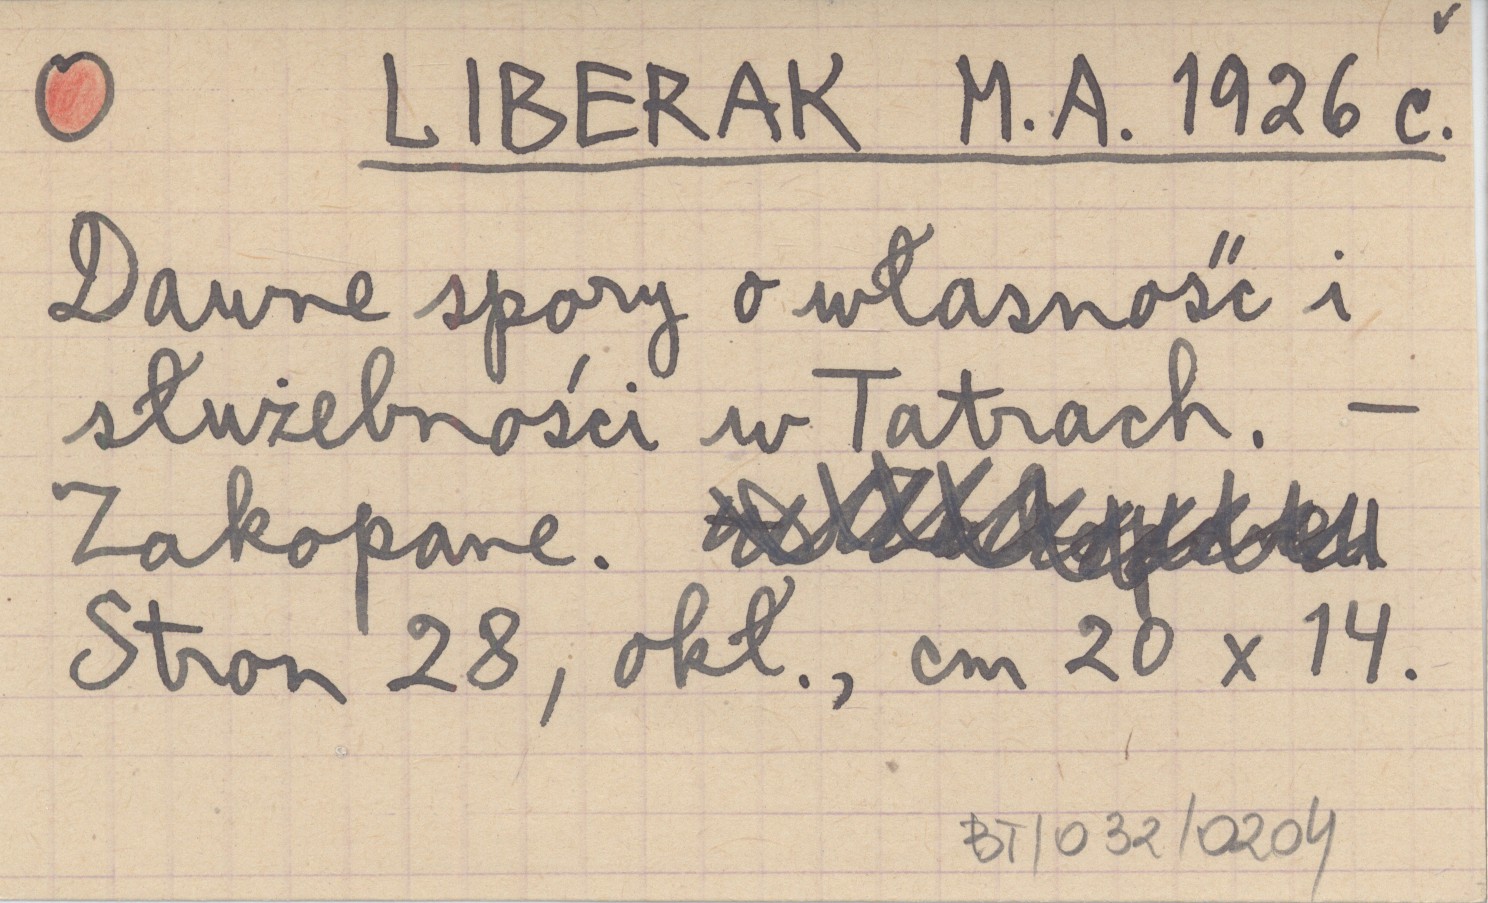 LIBERAK M.A. 1926 c.
Dawne spory o własność i
służebności w Tatrach. –
Zakopane.
Stron 28, okł., cm 20 x 14.
BT/032/0204